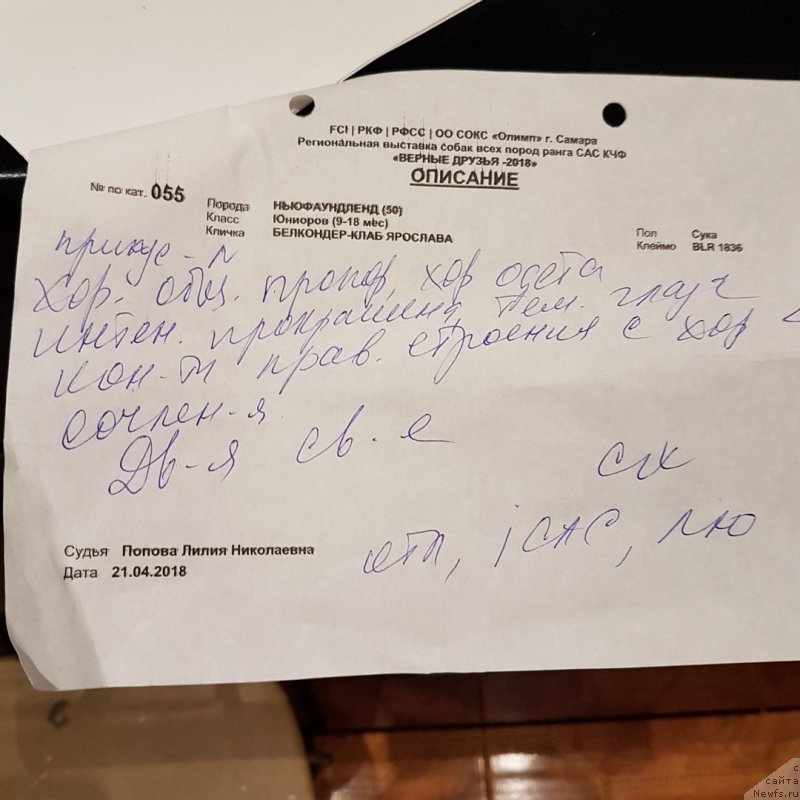 FCI | РКФ | РФСС | ОО СОКС «Олимп» г. Самара
Региональная выставка собак всех пород ранга САС КЧФ
«ВЕРНЫЕ ДРУЗЬЯ -2018»
ОПИСАНИЕ
№ по кат. 055
Порода НЬЮФАУНДЛЕНД (50)
Класс Юниоров (9-18 мес)
Кличка БЕЛКОНДЕР-КЛАБ ЯРОСЛАВА
Пол Сука
Клеймо BLR 1836
прикус - п
Хор. общ. пропор, хор одета
интен. прокрашена, тем. глаз
кон-ти прав. строения с хор
сочлен-я.
Дв-я св. - е
СК
отл, jCAC, ЛЮ
Судья Попова Лилия Николаевна
Дата 21.04.2018
с
сайта
Newfs.ru